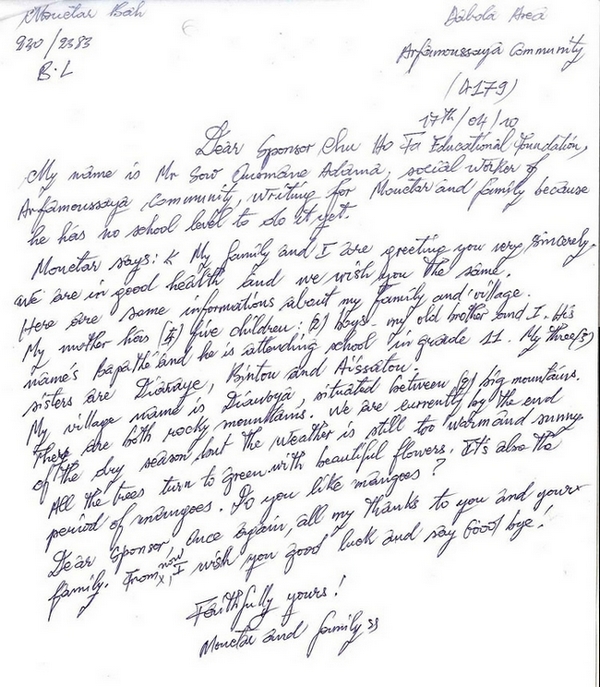 Mouctar Bah
Dabola Area
920/2383
Arfamoussaya Community
B.L
(4179)
17th/04/10
Dear Sponsor Chu Ho Fa Educational Foundation,
My name is Mr Sow Ousmane Adama, social worker of
Arfamoussaya Community, writing for Mouctar and family because
he has no school level to do it yet.
Mouctar says: « My family and I are greeting you very sincerely,
we are in good health and we wish you the same.
Here are some informations about my family and village.
My mother has (5) five children: (2) boys - my old brother and I. His
name's Bapathé and he is attending school in grade 11. My three (3)
sisters are Diaraye, Bintou and Aïssatou.
My village name is Diawoya, situated between (2) big mountains.
There are both rocky mountains. We are currently by the end
of the dry season but the weather is still too warm and sunny
All the trees turn to green with beautiful flowers. It's also the
period of mangoes. Do you like mangoes?
Dear Sponsor once again, all my thanks to you and your
family. From now x, I wish you good luck and say Good bye!
Faithfully yours!
Mouctar and family »